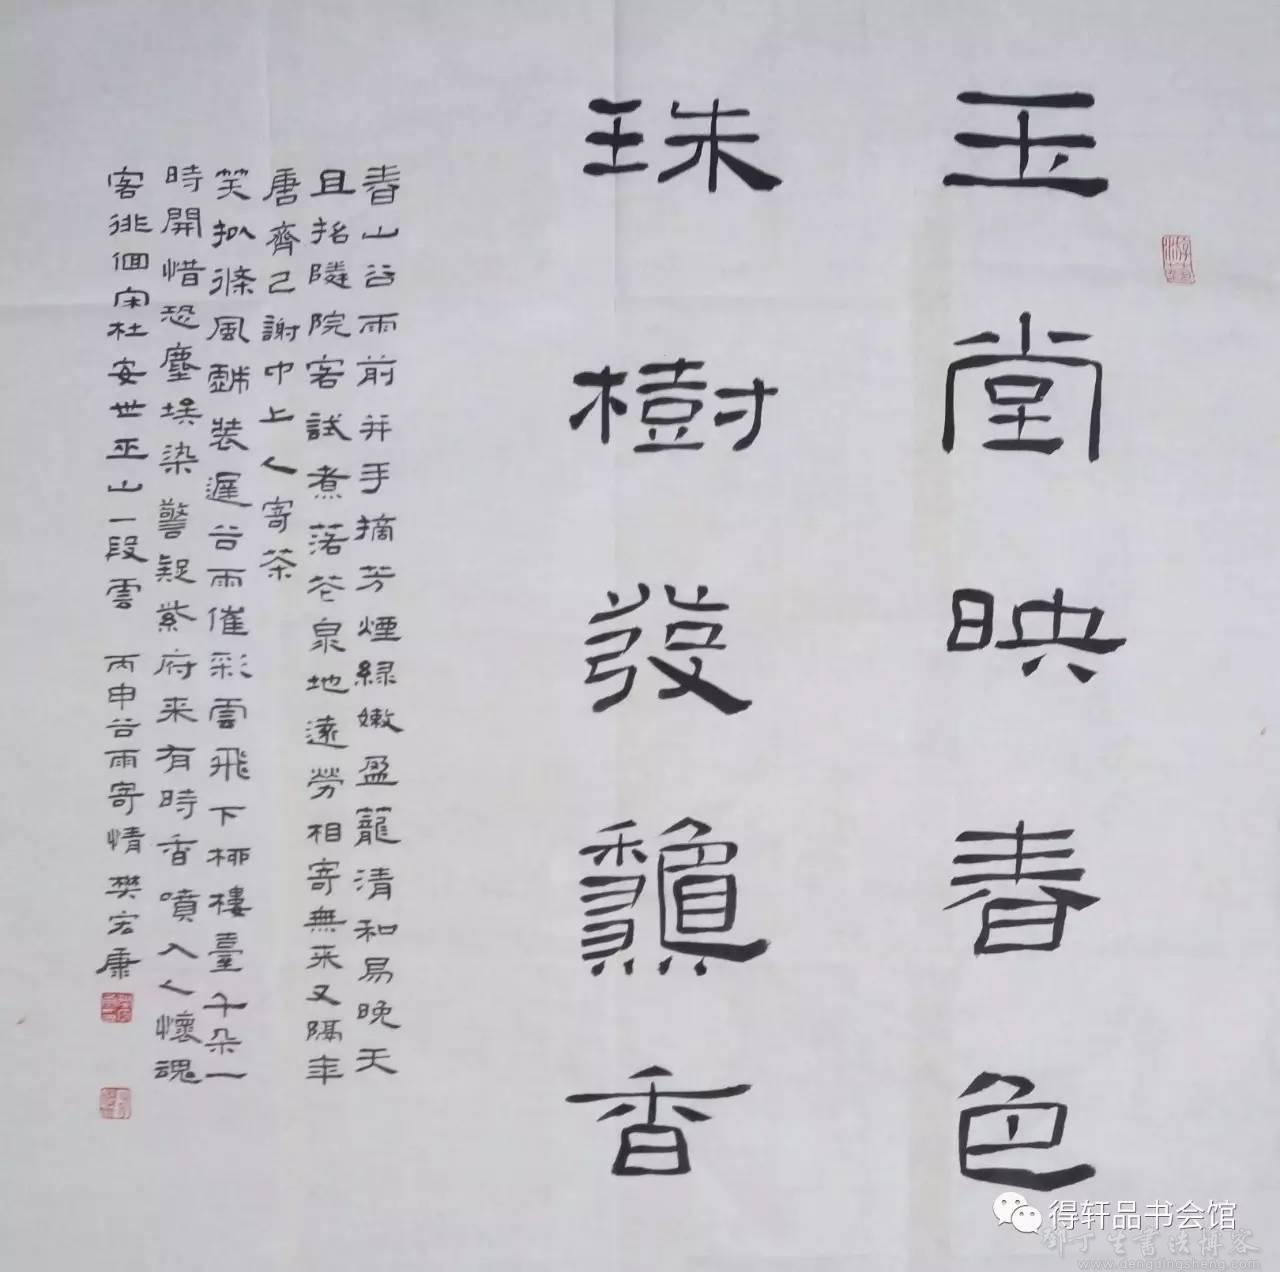 玉堂映春色
珠樹發龝香
春山谷雨前并手摘芳煙緑嫩盈蘢清和易晚天
且招隣院客試煮落花泉地遠勞相寄無来又隔年
唐齊己謝中上人寄茶
笑拟條風戲装遲谷雨催彩雲飛下栁樓臺千朵一
時開惜恐塵埃染警疑紫府来有時香噴入人懷魂
客徘徊宋杜安世巫山一段雲 丙申谷雨寄情樊宏康
得轩品书会馆
鄧丁生書法博客
www.dengdingsheng.com